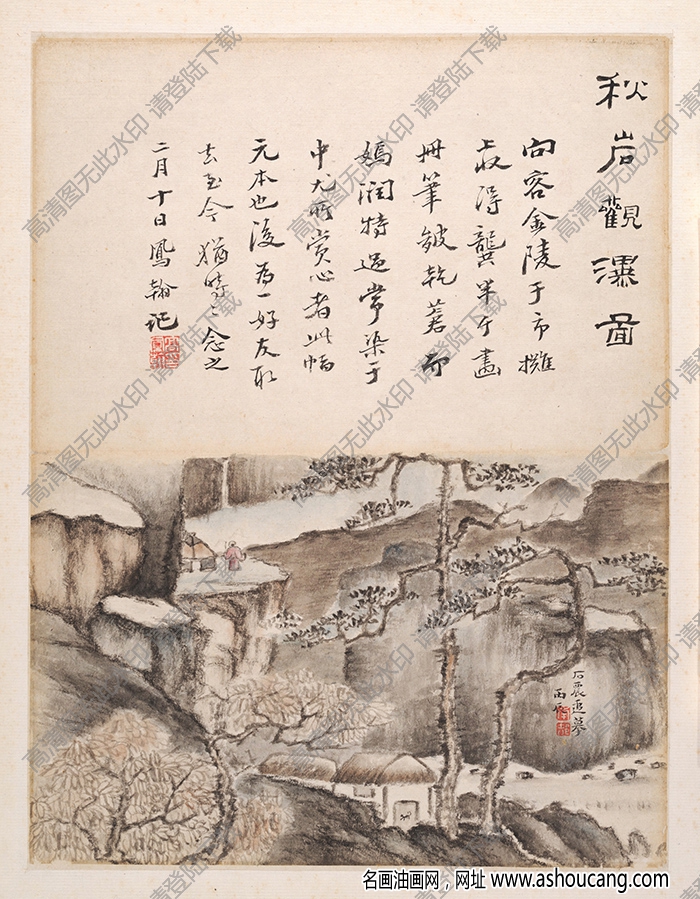 秋岩觀瀑啚
向客金陵于市攤
收得龔半千畫
冊筆皴乾蒼而
嫣潤特過常染于
中尤所賞心者此幅
元本也後為一好友取
去至今猶時〻念之
二月十日鳳翰記
石農追摹
高清图无此水印 请登陆下载
名画油画网，网址 www.ashoucang.com